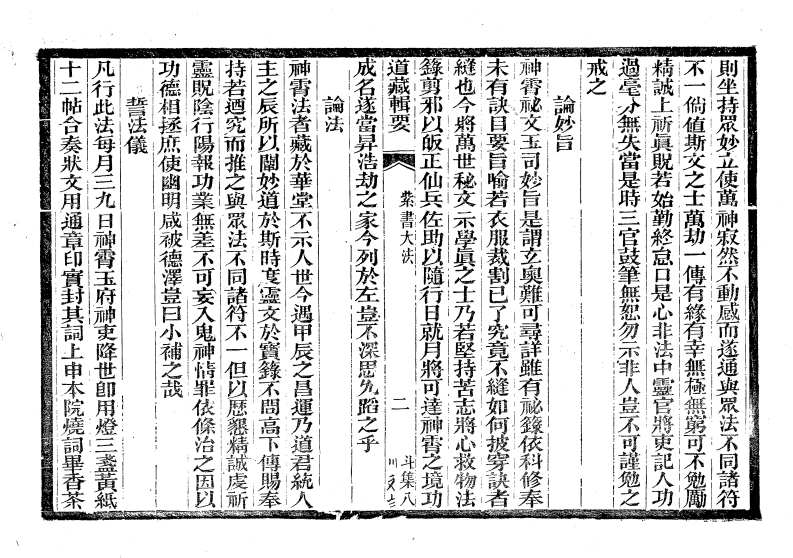 則坐持眾妙立使萬神寂然不動感而遂通與眾法不同諸符
不一倘值斯文之士萬劫一傳有緣有幸無極無窮可不勉勵
精誠上祈眞貺若始勤終怠口是心非法中靈官將吏記人功
過毫分無失當是時三官鼓筆無恕勿示非人豈不可謹勉之
戒之
論妙旨
神霄祕文玉司妙旨是謂立奧難可尋詳雖有祕籙依科修奉
未有訣目要旨喻若衣服裁割已了究竟不縫如何披穿訣者
縫也今將萬世秘文示學眞之士乃若堅持苦志將心救物法
錄剪邪以皈正仙兵佐助以隨行日就月將可達神霄之境功
道藏輯要
紫書大法
二
斗集八
成名遂當昇浩劫之家今列於左豈不深思免蹈之乎
論法
神霄法者藏於華堂不示人世今遇甲辰之昌運乃道君統人
主之辰所以闡妙道於斯時度靈文於寶籙不問高下傳賜奉
持若迺究而推之與眾法不同諸符不一但以歷懇精誠虔祈
靈貺陰行陽報功業無差不可妄入鬼神情罪依條治之因以
功德相拯庶使幽明咸被德澤豈曰小補之哉
誓法儀
凡行此法每月三九日神霄玉府神吏降世卽用燈三盞黃紙
十二帖合奏狀文用通章印實封其詞上申本院燒詞畢香茶